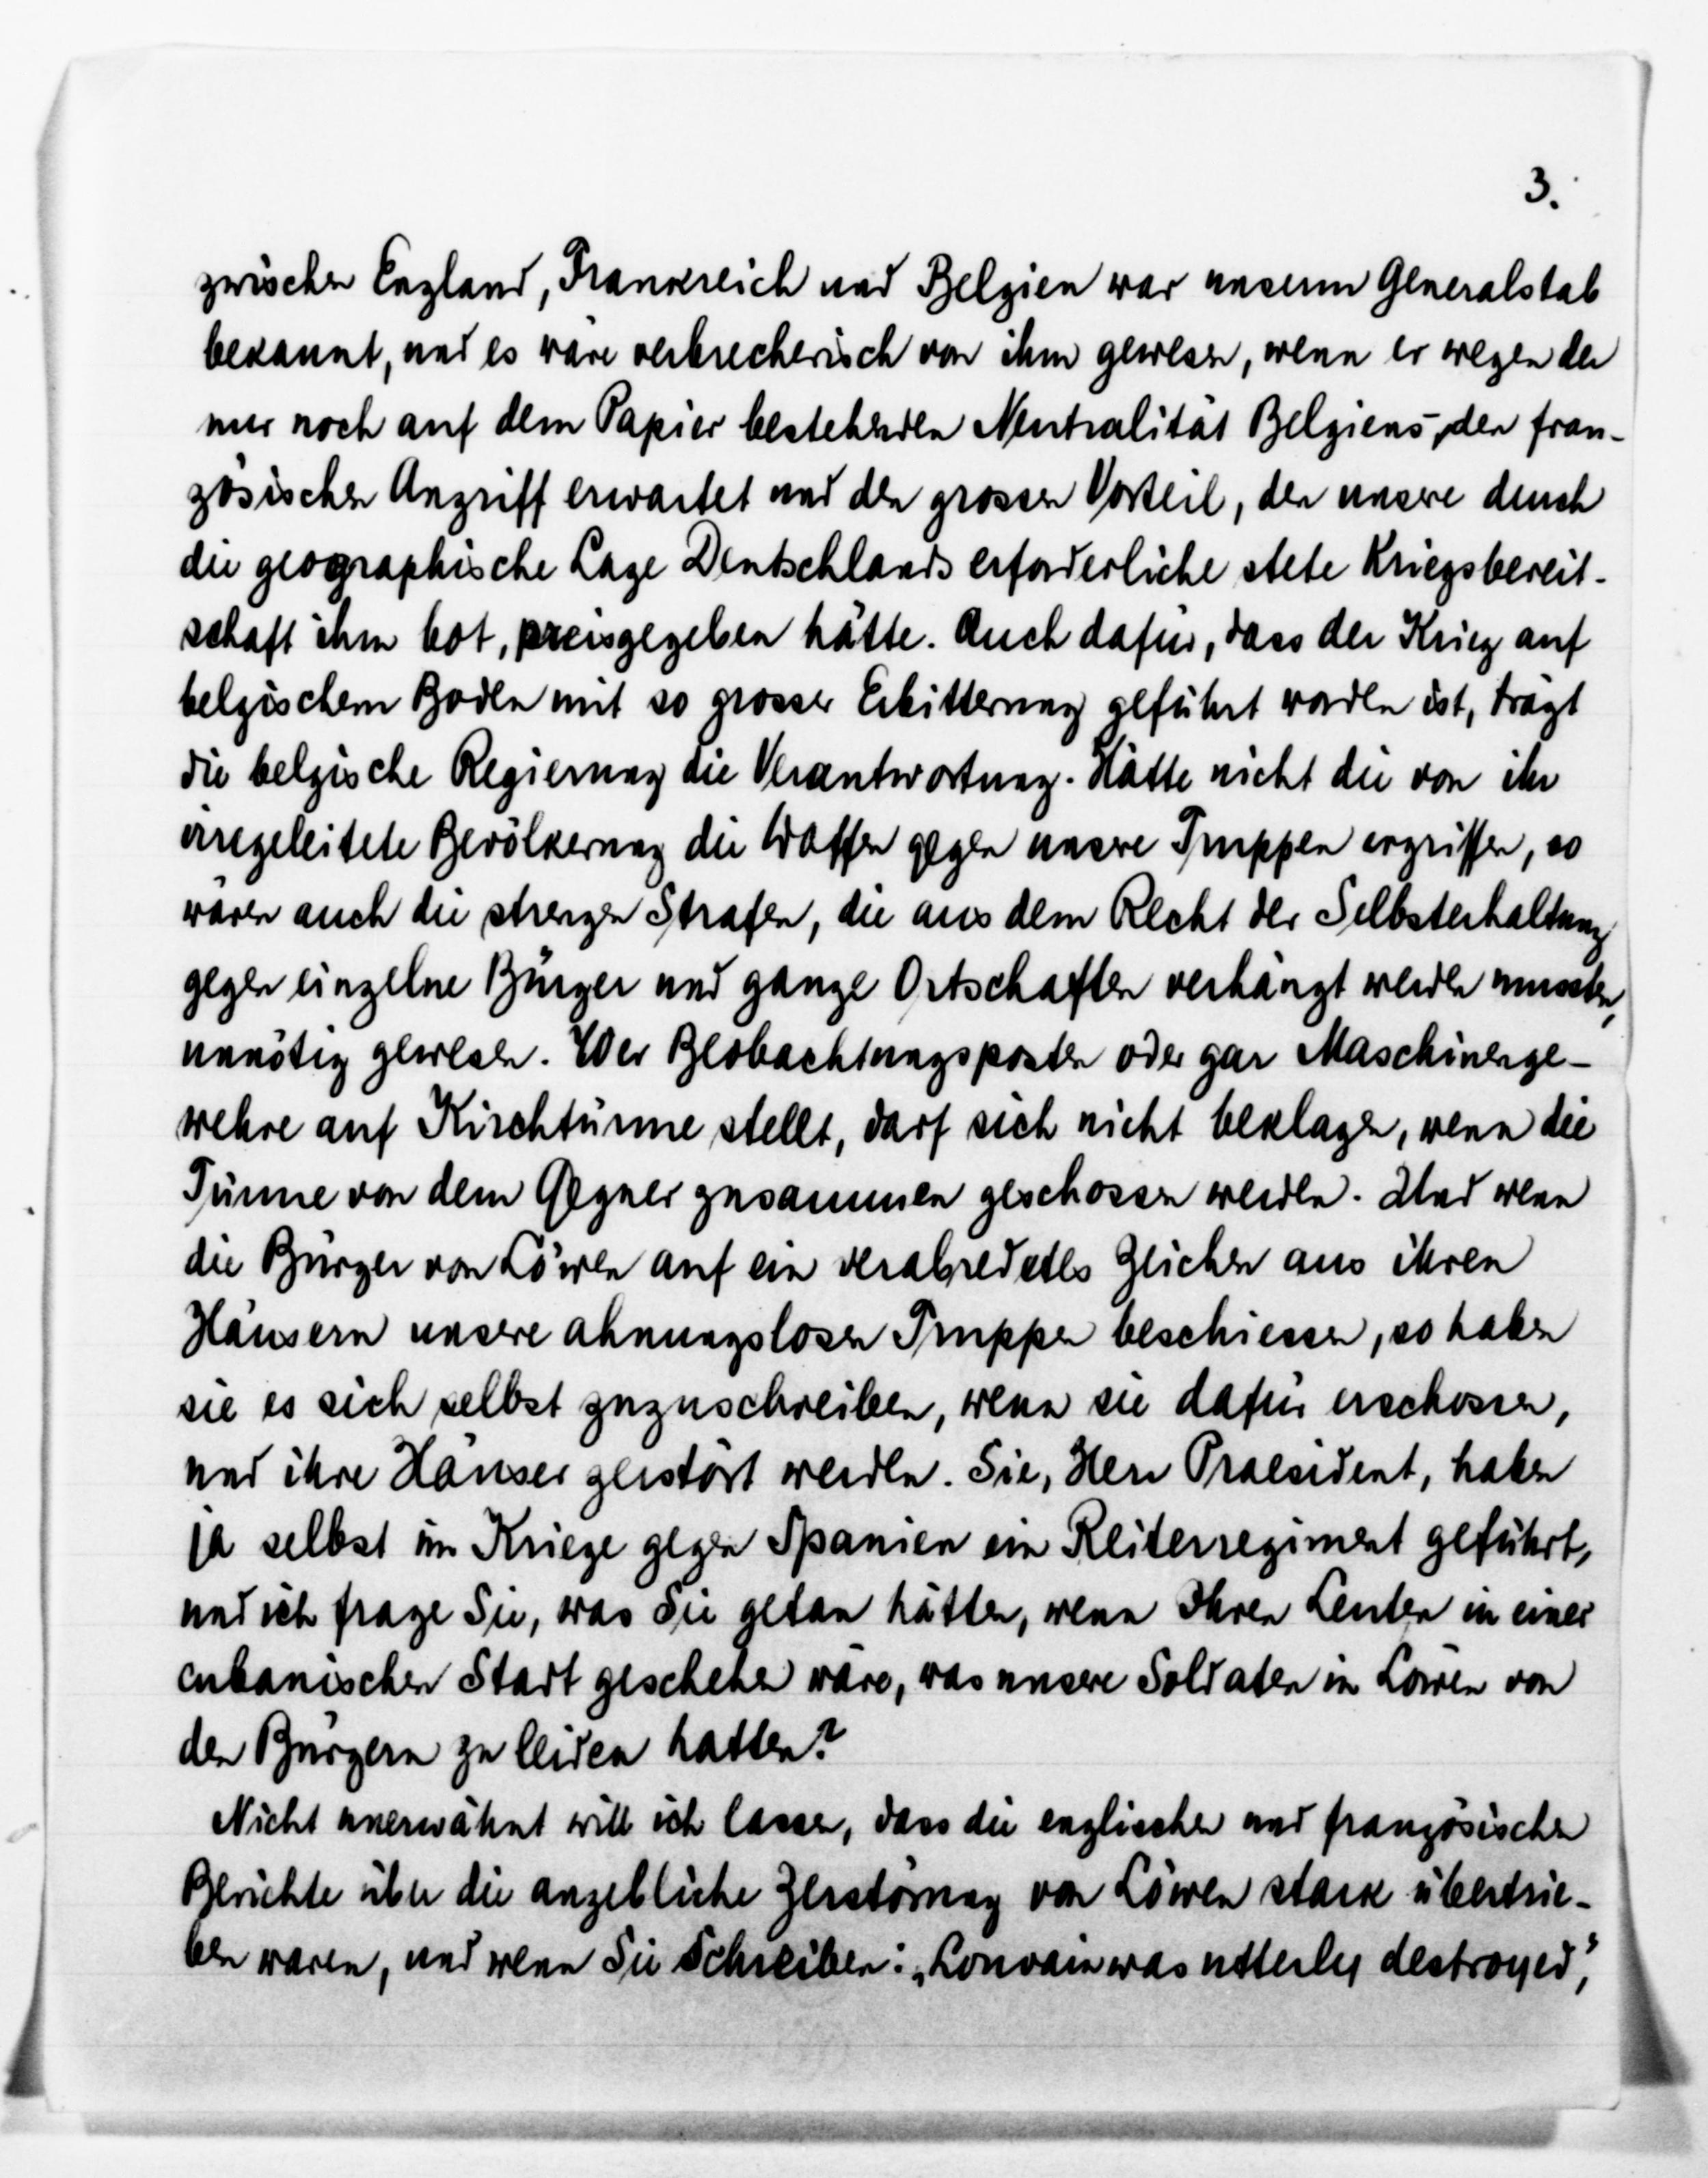 3.
zwischen England, Frankreich und Belgien war unserm Generalstab
bekannt, und es wäre verbrecherisch von ihm gewesen, wenn er wegen der
nur noch auf dem Papier bestehenden Neutralität Belgiens, den fran-
zösischen Angriff erwartet und den grossen Vorteil, den unsere durch
die geographische Lage Deutschlands erforderliche stete Kriegsbereit-
schaft ihm bot, preisgegeben hätte. Auch dafür, dass der Krieg auf
belgischem Boden mit so grosser Erbitterung geführt worden ist, trägt
die belgische Regierung die Verantwortung. Hätte nicht die von ihr
irregeleitete Bevölkerung die Waffen gegen unsere Truppen ergriffen, so
wären auch die strengen Strafen, die aus dem Recht der Selbsterhaltung
gegen einzelne Bürger und ganze Ortschaften verhängt werden mussten,
unnötig gewesen. Wer Beobachtungsposten oder gar Maschinenge-
wehre auf Kirchtürme stellt, darf sich nicht beklagen, wenn die
Türme von dem Gegner zusammen geschossen werden. Und wenn
die Bürger von Löwen auf ein verabredetes Zeichen aus ihren
Häusern unsere ahnungslosen Truppen beschiessen, so haben
sie es sich selbst zuzuschreiben, wenn sie dafür erschossen,
und ihre Häuser zerstört werden. Sie, Herr Praesident, haben
ja selbst im Kriege gegen Spanien ein Reiterregiment geführt,
und ich frage Sie, was Sie getan hätten, wenn Ihren Leuten in einer
cubanischen Stadt geschehen wäre, was unsere Soldaten in Löwen von
den Bürgern zu leiden hatten?
Nicht unerwähnt will ich lassen, dass die englischen und französischen
Berichte über die angebliche Zerstörung von Löwen stark übertrie-
ben waren, und wenn Sie schreiben: „Louvain was utterley destroyed",